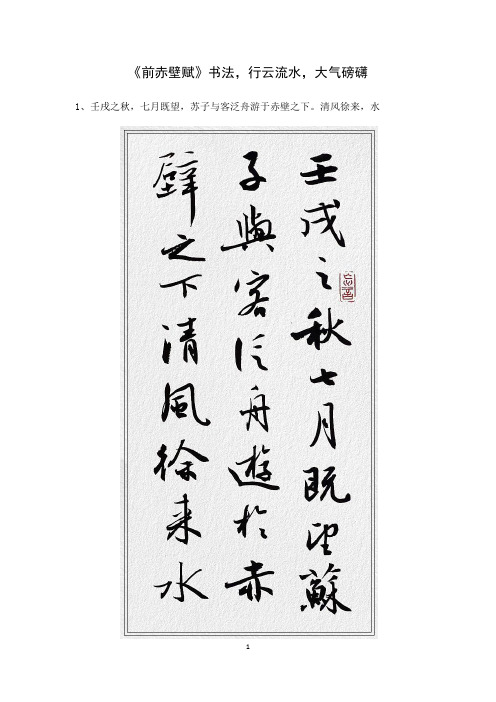 《前赤壁赋》书法，行云流水，大气磅礴
1、壬戌之秋，七月既望，苏子与客泛舟游于赤壁之下。清风徐来，水
壬戌之秋七月既望蘇
子與客泛舟遊於赤
壁之下清風徐来水
1